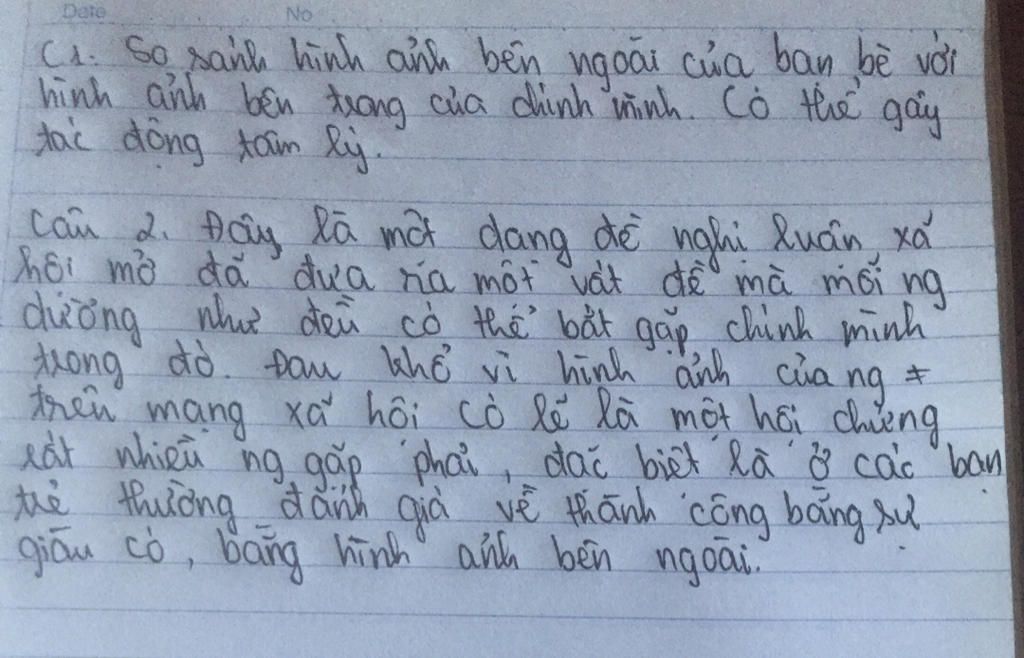 Date No
C1. So sánh hình ảnh bên ngoài của bạn bè với
hình ảnh bên trong của chính mình. Có thể gây
tác động tâm lý.
Câu 2. Đây là một dạng đề nghị luận xã
hội mở đã đưa ra một vất đề mà mỗi ng
dường như đều có thể bắt gặp chính mình
trong đó. Đau khổ vì hình ảnh của ng ≠
trên mạng xã hội có lẽ là một hội chứng
rất nhiều ng gặp phải, đặc biệt là ở các bạn
trẻ thường đánh giá về thành công bằng sự
giàu có, bằng hình ảnh bên ngoài.